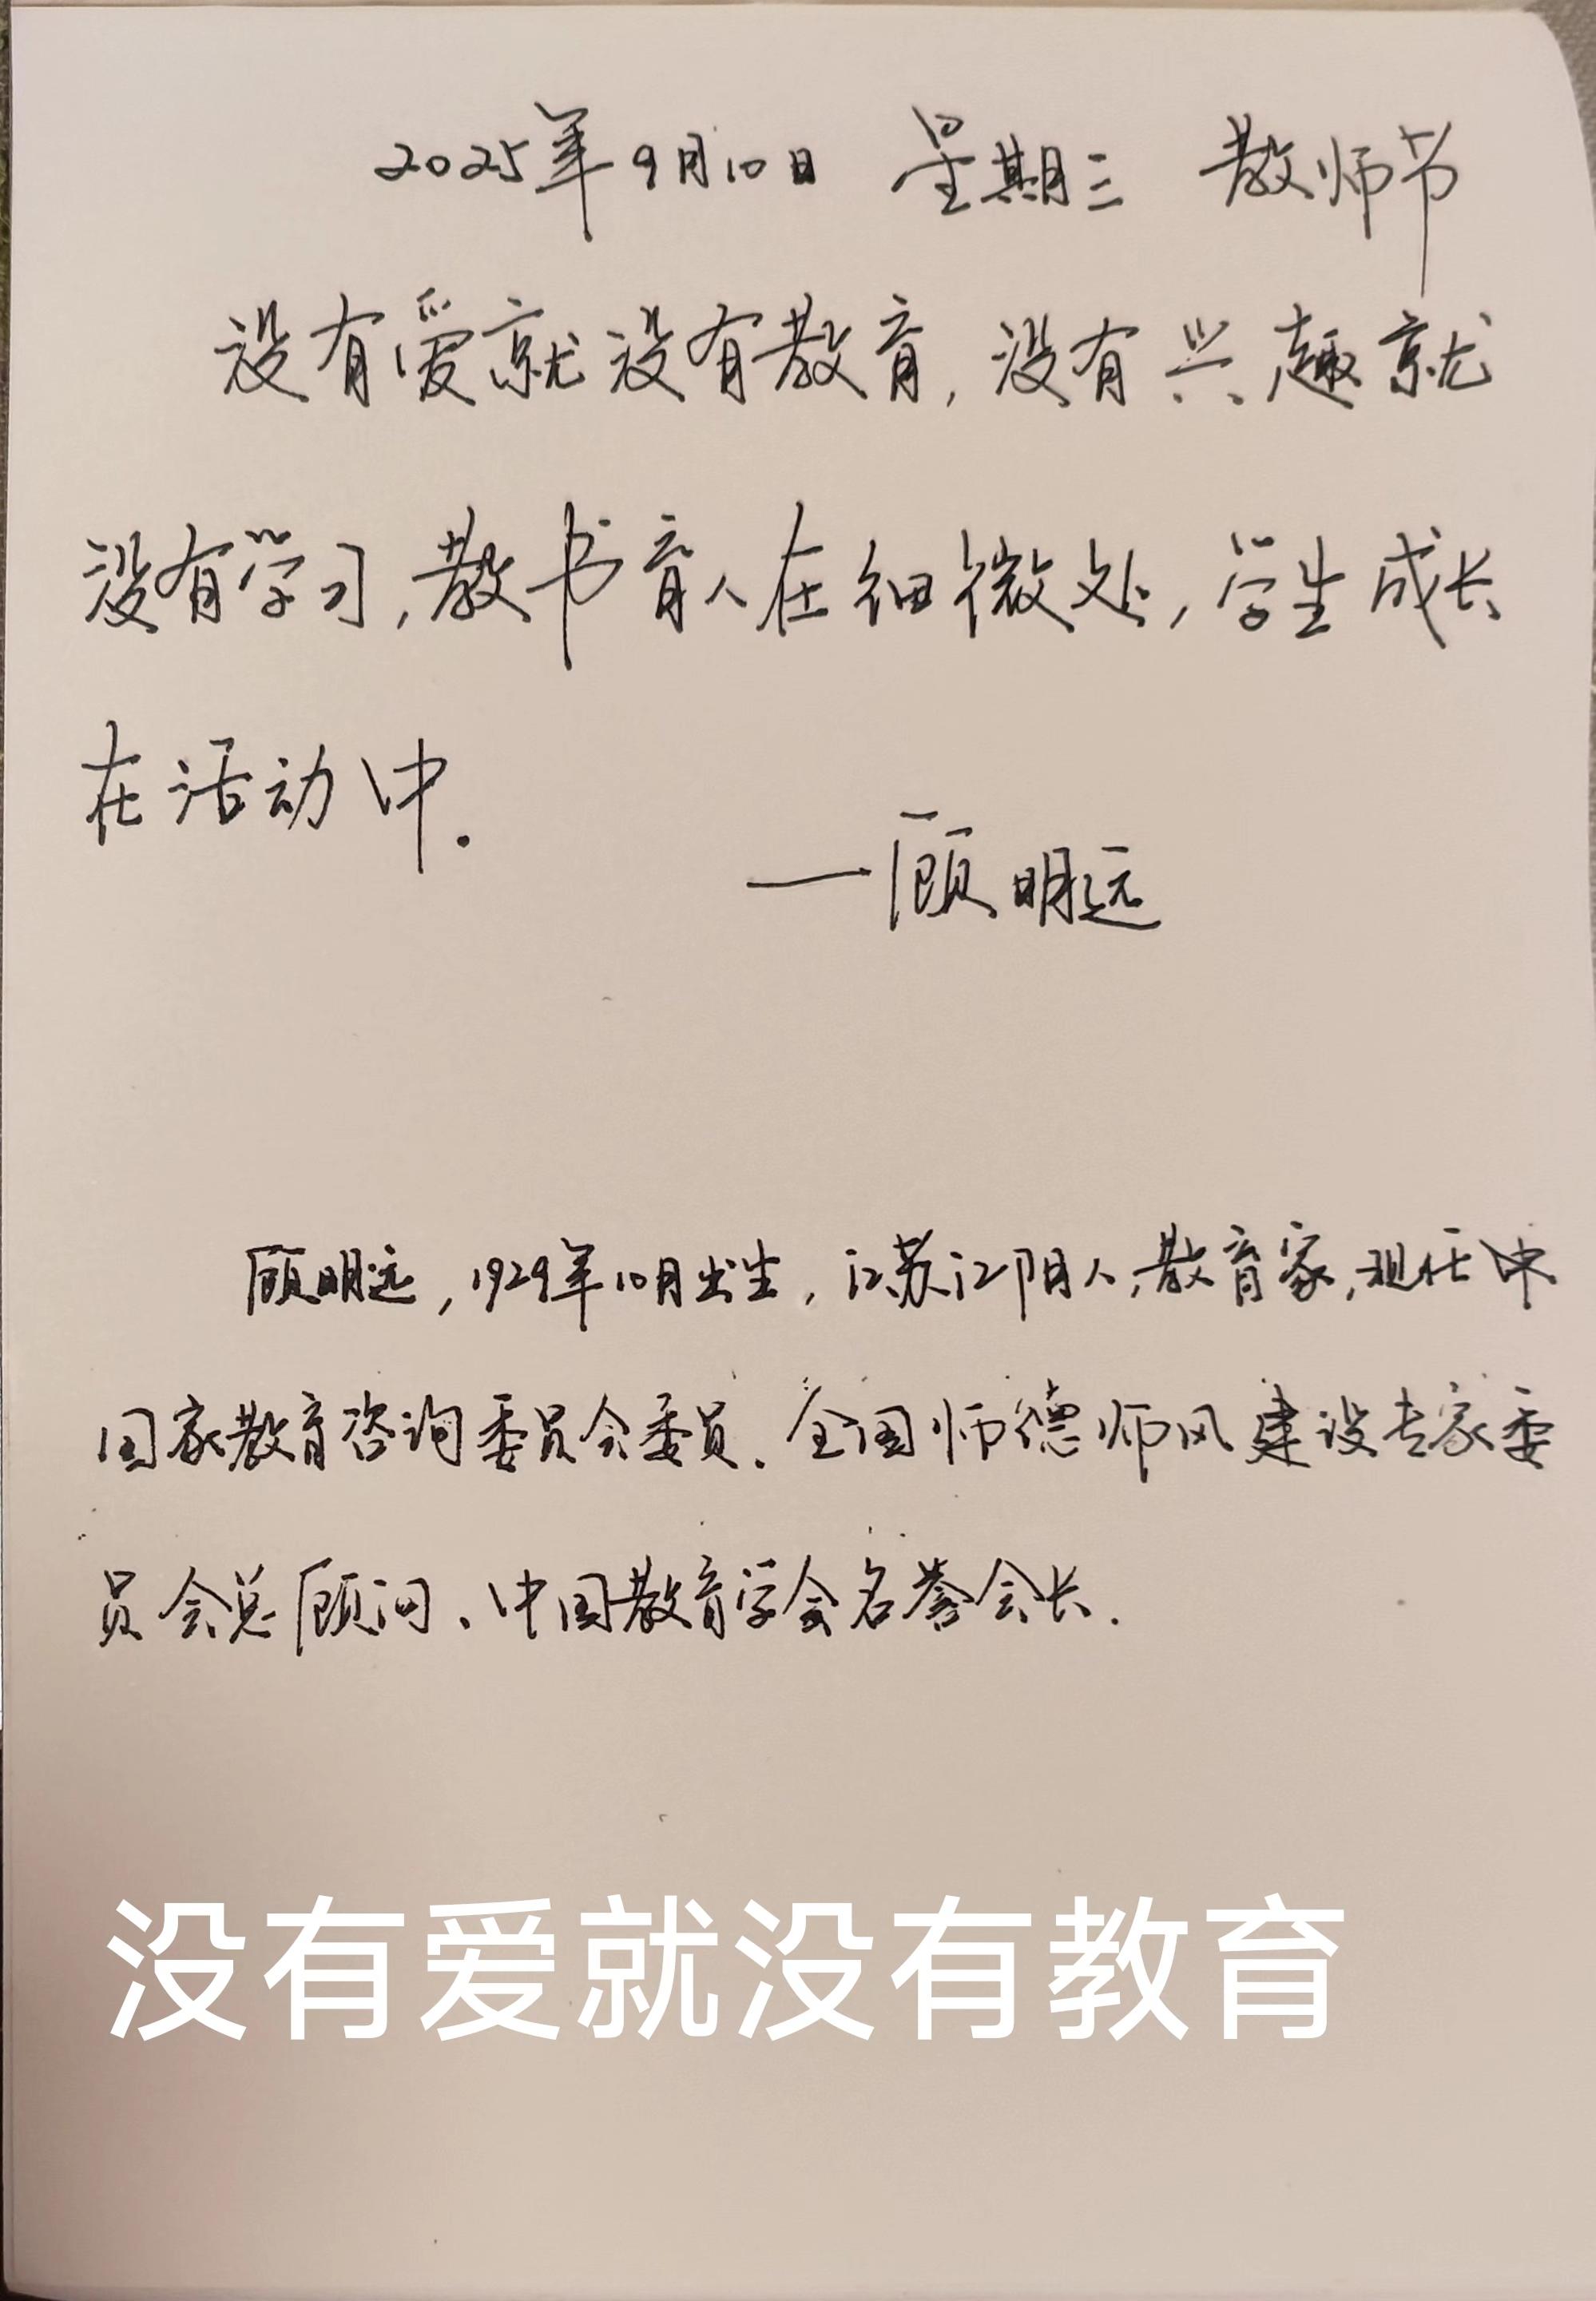 2025年9月10日 星期三 教师节
没有爱就没有教育,没有兴趣就
没有学习,教书育人在细微处,学生成长
在活动中.
—顾明远
顾明远,1929年10月出生,江苏江阴人,教育家,现任中
国家教育咨询委员会委员、全国师德师风建设专家委
员会总顾问、中国教育学会名誉会长.
没有爱就没有教育